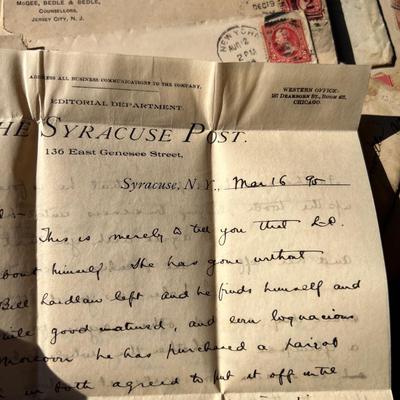 McGEE, BEDLE & BEDLE,
COUNSELLORS,
JERSEY CITY, N. J.
DEC 19
NEW YORK
AUG 2
2 PM
ADDRESS ALL BUSINESS COMMUNICATIONS TO THE COMPANY.
EDITORIAL DEPARTMENT.
WESTERN OFFICE:
HE SYRACUSE POST.
CHICAGO.
136 East Genesee Street,
Syracuse, N. Y., Mar 16 95
This is merely to tell you that
bout himself She has gone without
Bill left and he finds himself and
good natured, and even loquacious
Moreover he has purchased a pair of
in both agreed to put it off until